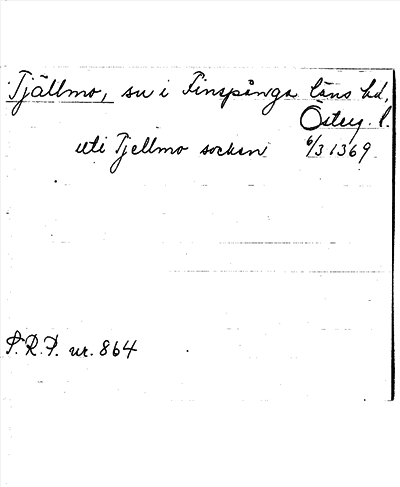 Tjällmo, sn i Finspånga läns hd,
Österg. l.
uti Tjellmo sockan 6/3 1369
S.R.P. nr. 864